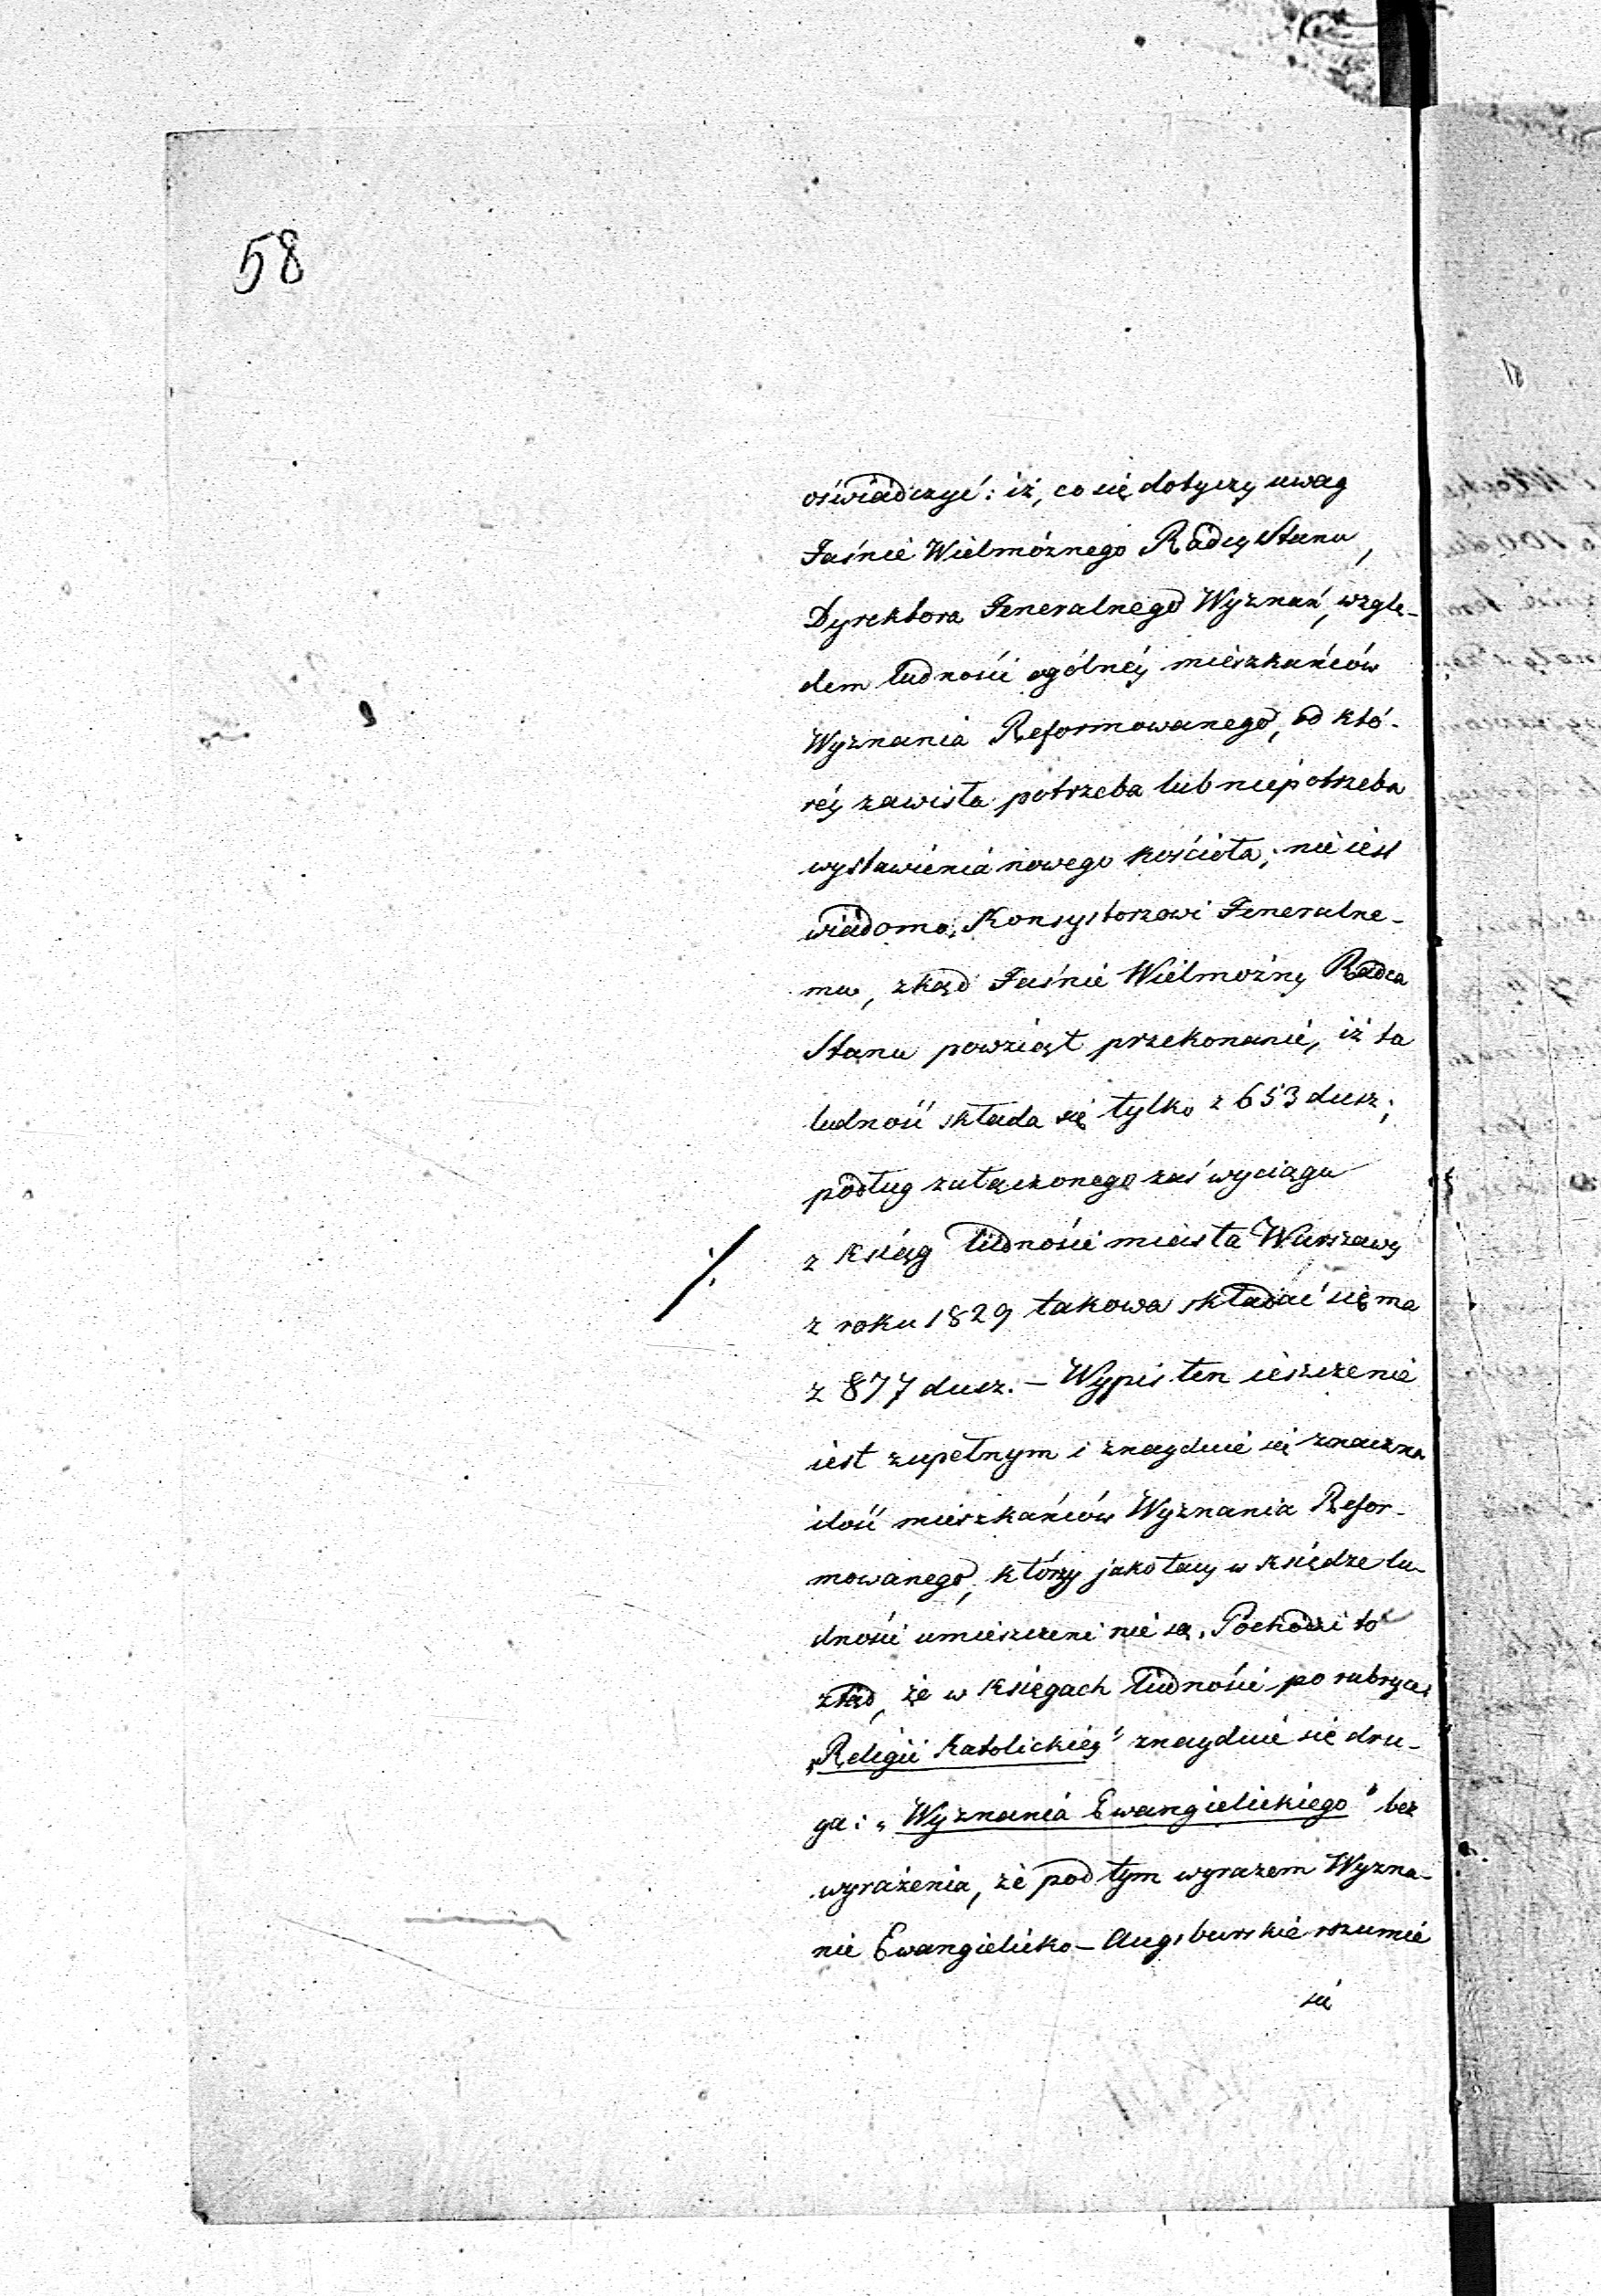 58
oświadczyć: iż, co się dotyczy uwag
Jaśnie Wielmożnego Radcy Stanu,
Dyrektora Jeneralnego Wyznań, wzglę-
dem ludności ogólnéj mieszkańców
Wyznania Reformowanego, od któ-
réj zawisła potrzeba lub niepotrzeba
wystawienia nowego kościoła; nie iest
wiadomo, Konsystorzowi Jeneralne-
mu, zkąd Jaśnie Wielmożny Radca
Stanu powziął przekonanie, iż ta
ludność składa się tylko z 653 dusz;
podług załączonego zaś wyciągu
z Ksiąg ludności miasta Warszawy
z roku 1829 takowa składać się ma
z 877 dusz. – Wypis ten ieszcze nie
iest zupełnym i znayduie się znaczna
ilość mieszkańców Wyznania Refor-
mowanego, którzy jako tacy w Księdze lu-
dności umieszczeni nie są. Pochodzi to
ztąd, że w Księgach ludności po rubryce:
„Religii Katolickiéj" znayduie się dru-
ga: „Wyznania Ewangielickiego" bez
wyrażenia, że pod tym wyrazem Wyzna-
nie Ewangielicko-Augsburskie rozumie
się